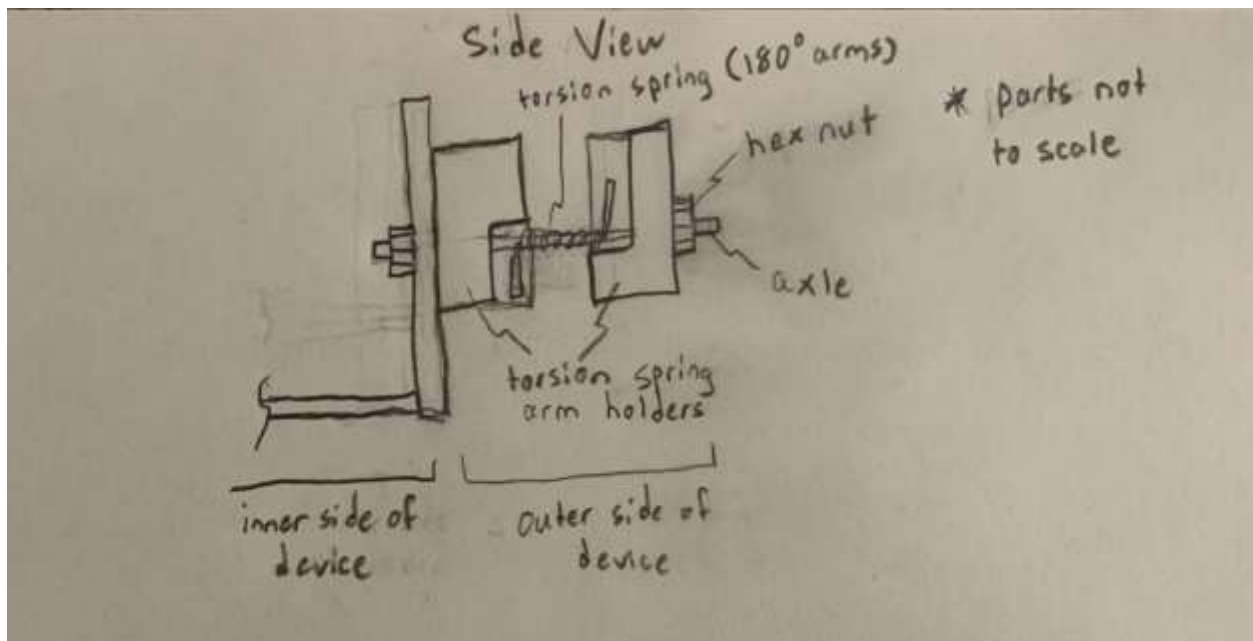 Side View
torsion spring (180° arms)
* parts not
to scale
hex nut
axle
torsion spring
arm holders
inner side of
device
outer side of
device